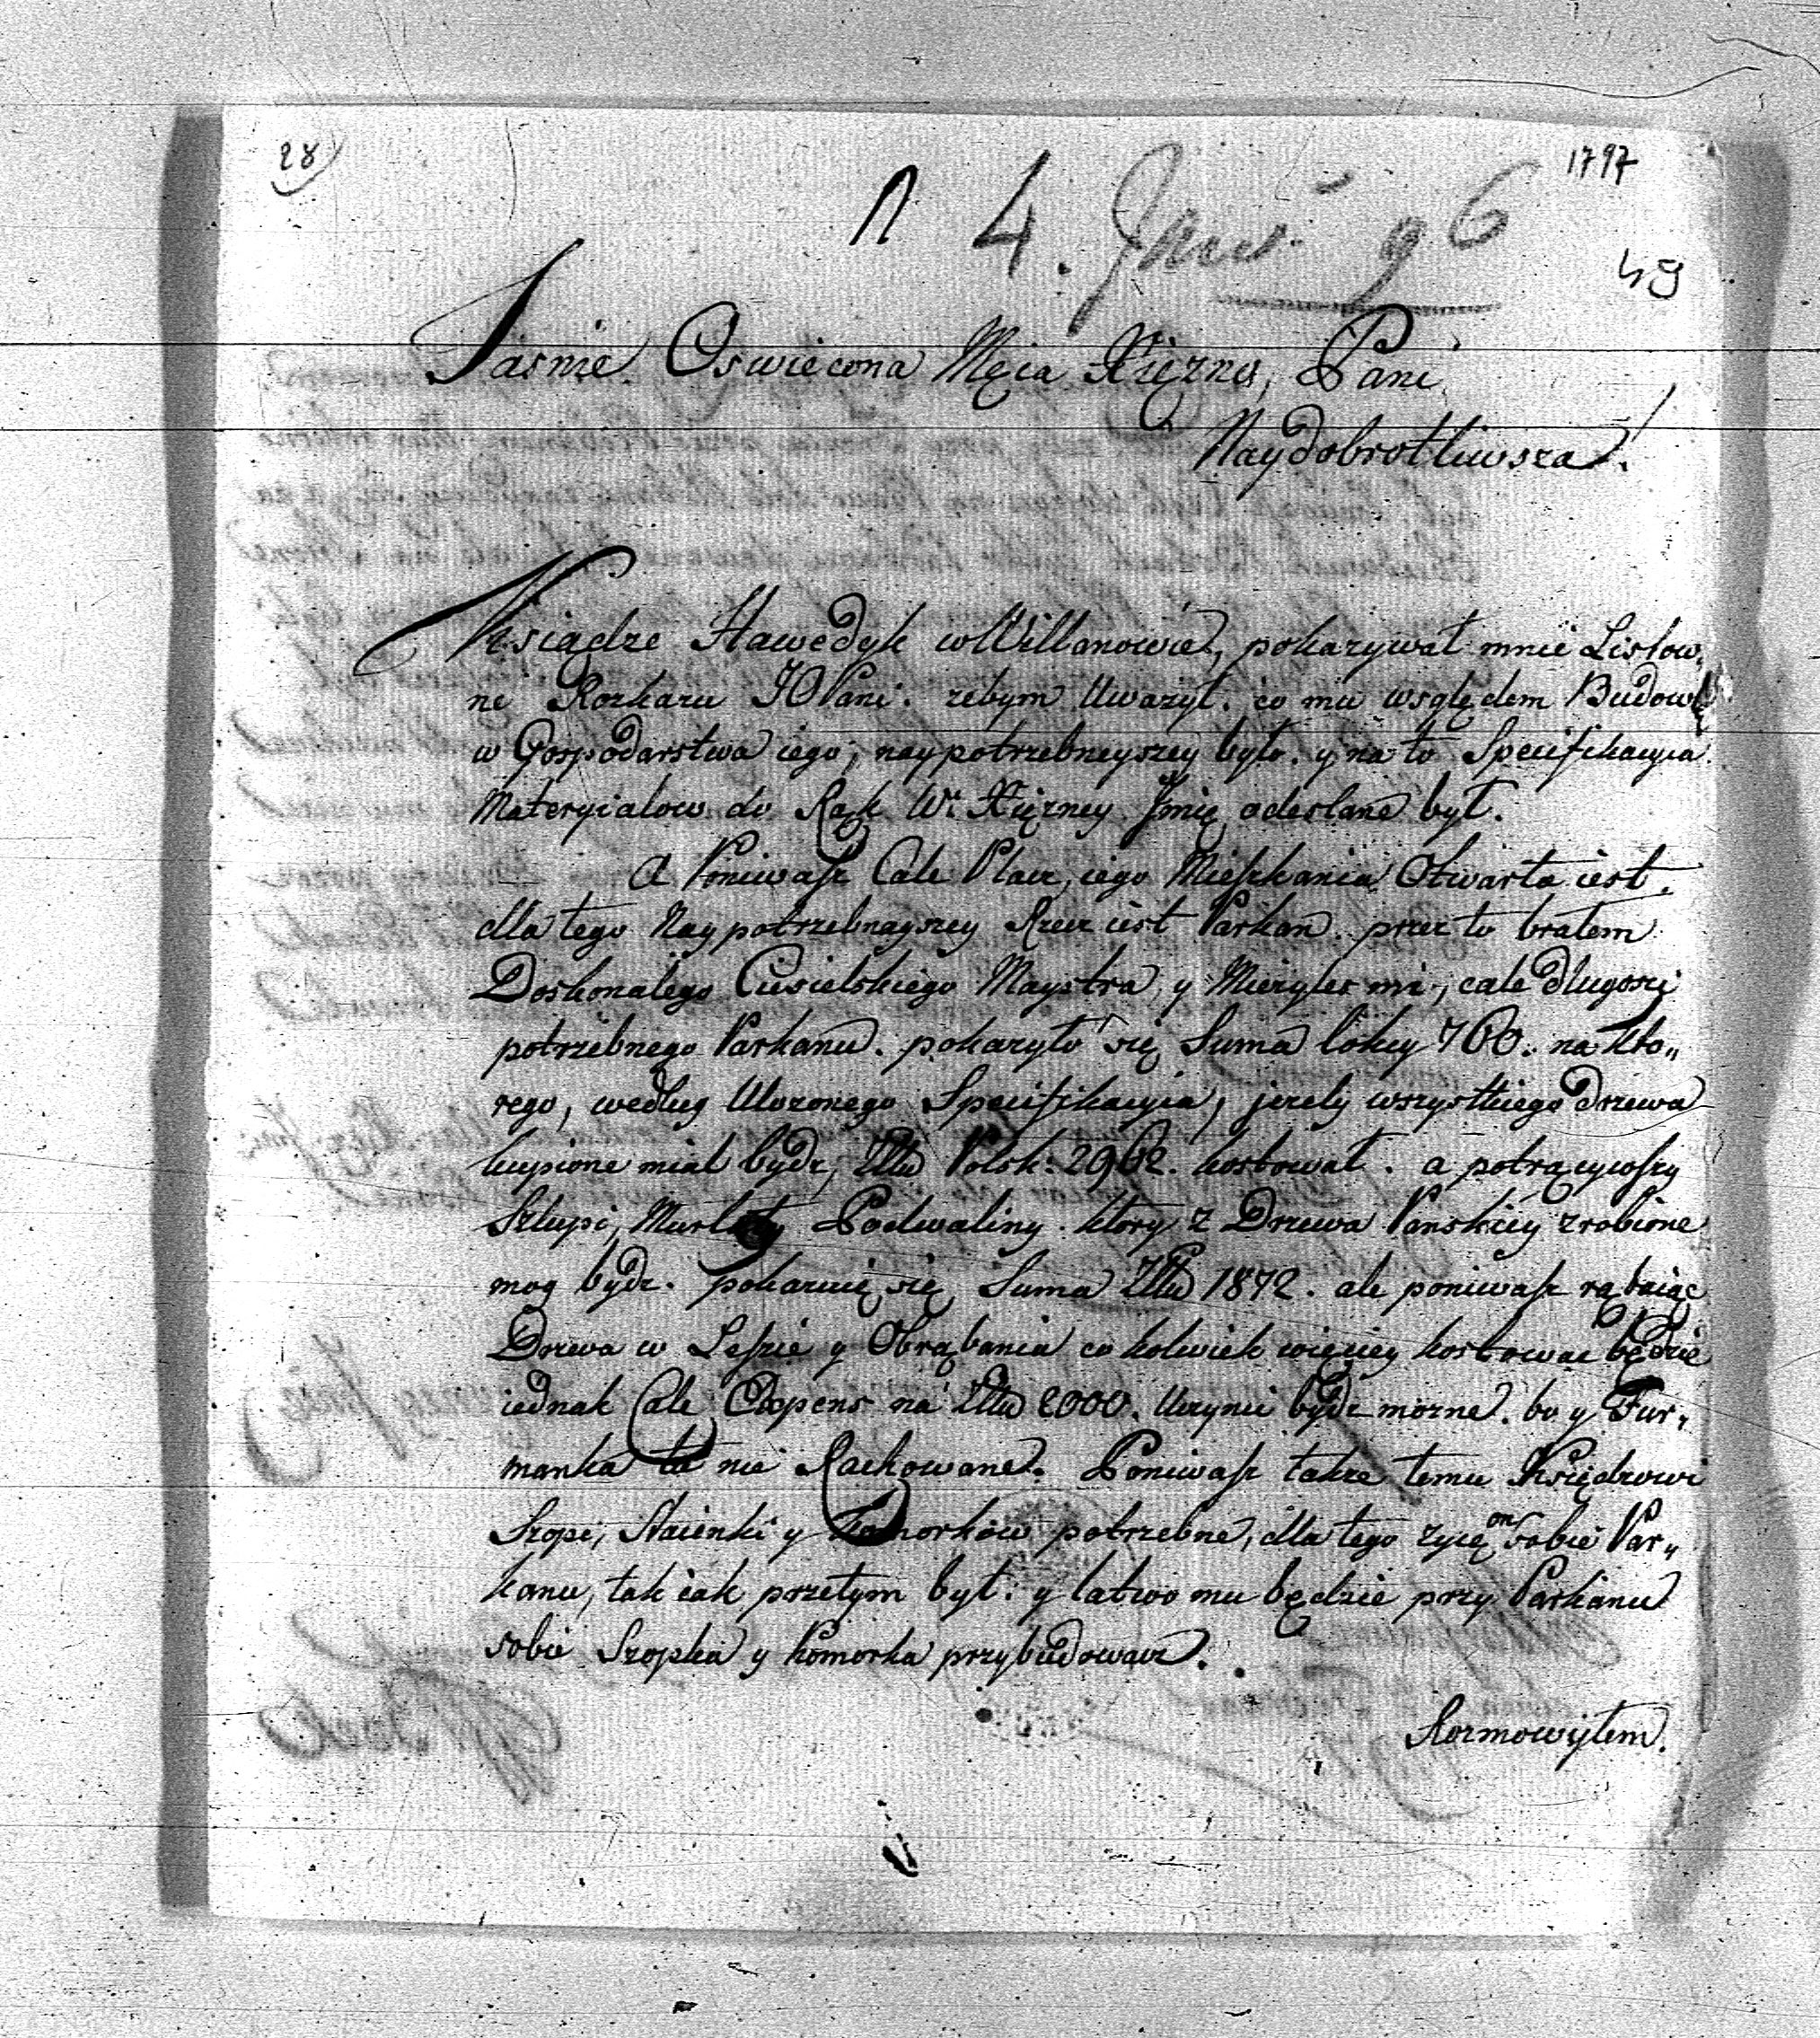 28
1797
n 4. Janu 96
49
Jasnie Oswiecona Męia Xiężna, Pani
Naydobrotliwsza!
Xsiądze Hawedyk w Willanowie, pokazywał mnie Listow,,
ne Rozkazu JOPani. zebym Uwazył. co mu wsględem Budowle
w Gospodarstwa iego, naypotrzebneyszey było. y na to Specifikacyia
Materyialow do Rąk Wr. Xiężney Jmię odeslane był.
A Poniwasz Cale Placz, iego Mieszkania Otwarta iest.
dla tego Naypotrzebnayszey Rzecz iest Parkan. przez to bratem
Doskonałego Ciesielskiego Maystra, y Mierzyler mi, cale długosci
potrzebnego Parkanu. pokazyło się Suma lokcy 760. na kto,,
rego, według Ulozonego Specifikacyia, jezely wszystkiego drzewa
kupione miał bydz, Złłu Polsk: 2962. kostował. a potrącywszy
Szlupi, Murłaty Podwaliny. ktory z Drzewa Panskiey zrobione
mog bydz. pokazuię się Suma Złłu 1872. ale poniwasz rąbaiąc
Drzewa w Leszie y Obrąbania co kolwiek więciey kostowac będzie
iednak Cale Expens na Złłu 2000. Uczynic bydz mozne. bo y Fur,,
manka ta nie Rachowane. Poniwasz takze temu Księdzowi
Szopi, Staienki y Komorkow potrzebne, dla tego zycę on sobie Par,,
kanu, tak iak przetym był. y latwo mu będzie przy Parkanu
sobie Szopka y Komorka przybudowacz.
Rozmowiłem.